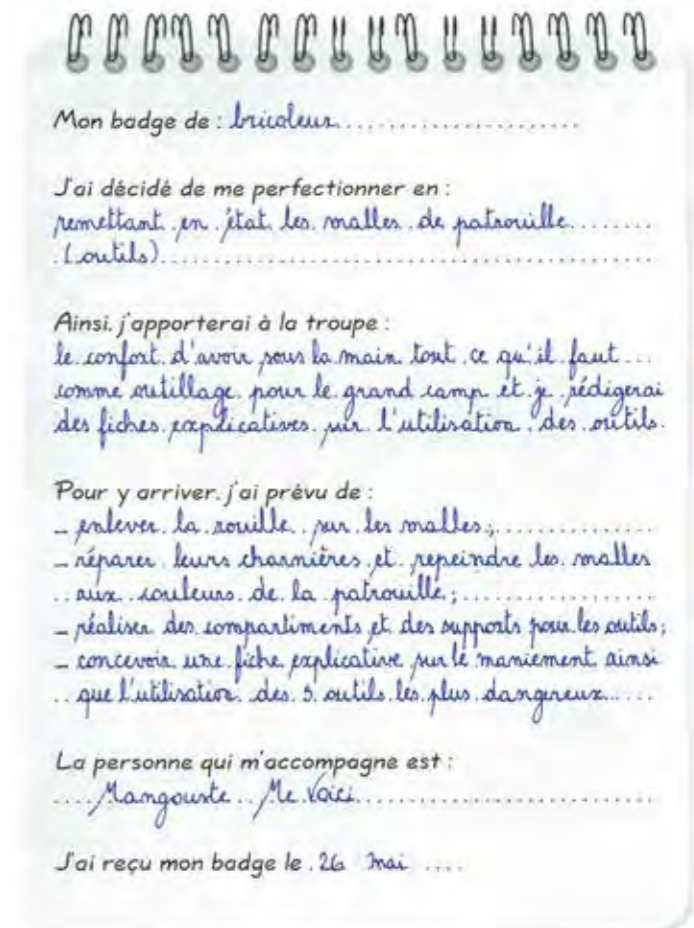 Mon badge de : bricoleur
J'ai décidé de me perfectionner en :
remettant en état les malles de patrouille
(outils)
Ainsi, j'apporterai à la troupe :
le confort d'avoir sous la main tout ce qu'il faut
comme outillage pour le grand camp et je rédigerai
des fiches explicatives sur l'utilisation des outils.
Pour y arriver, j'ai prévu de :
- enlever la rouille sur les malles ;
- réparer leurs charnières et repeindre les malles
aux couleurs de la patrouille ;
- réaliser des compartiments et des supports pour les outils ;
- concevoir une fiche explicative sur le maniement ainsi
que l'utilisation des 5 outils les plus dangereux
La personne qui m'accompagne est :
Mangouste Me Voici
J'ai reçu mon badge le 26 mai